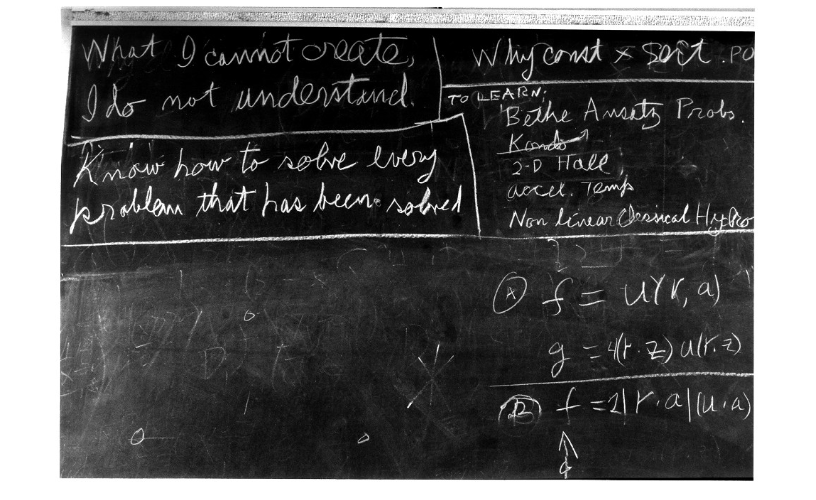 What I cannot create,
I do not understand.
Know how to solve every
problem that has been solved
Why const × sect . PO
TO LEARN:
Bethe Ansatz Probs.
Kondo
2-D Hall
accel. Temp
Non linear Classical Hydro
Ⓐ f = u(r, a)
g = 4(r·z) u(r.z)
Ⓑ f = 2|r·a|(u·a)